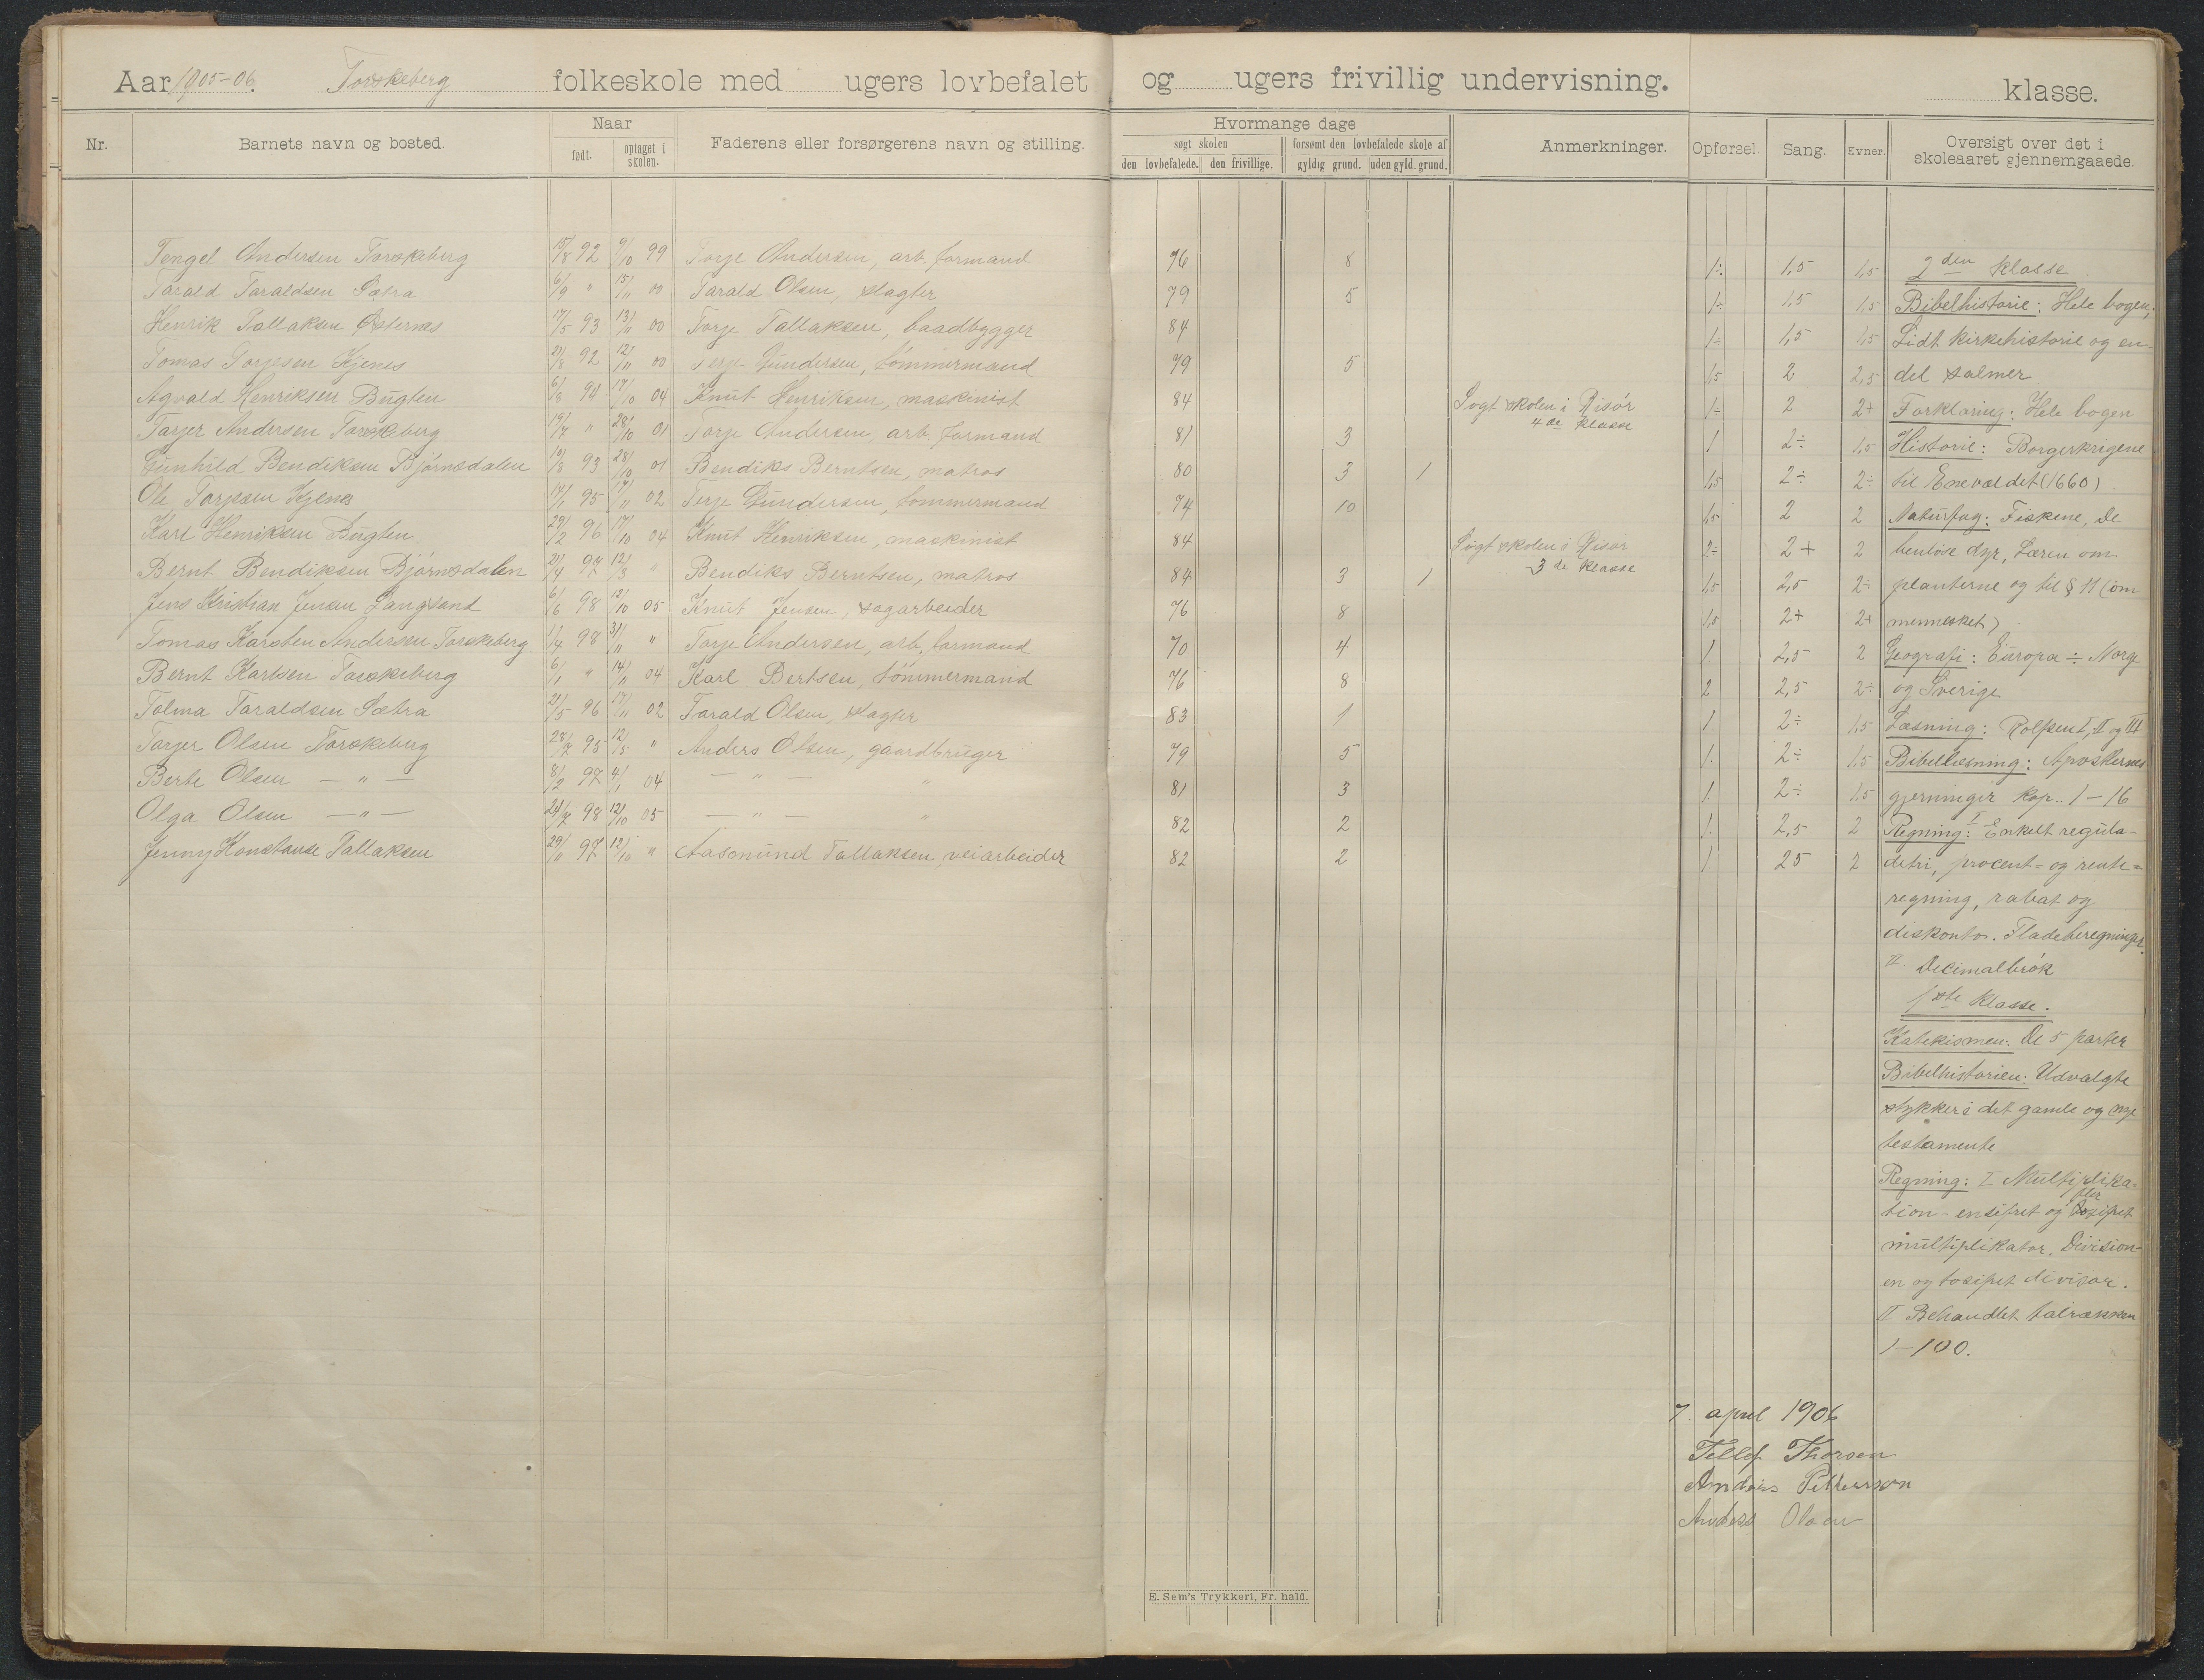 Aar 1905-06. Torskeberg folkeskole med ugers lovbefalet og ugers frivillig undervisning. klasse.
Nr. Barnets navn og bosted. Naar født. optaget i skolen. Faderens eller forsørgerens navn og stilling. Hvormange dage søgt skolen den lovbefalede. den frivillige. forsømt den lovbefalede skole af gyldig grund. uden gyld. grund. Anmerkninger. Opførsel. Sang. Evner. Oversigt over det i skoleaaret gjennemgaaede.
Tengel Andersen Torskeberg 15/8 92 9/10 99 Torje Andersen, arb. formand 76 8 1÷ 1,5 1,5
Tarald Taraldsen Sætra 6/9 " 15/11 00 Tarald Olsen, slagter 79 5 1÷ 1,5 1,5
Henrik Tallaksen Østernes 17/5 93 13/11 00 Torje Tallaksen, baadbygger 84 1÷ 1,5 1,5
Tomas Torjesen Hjenes 21/8 92 12/11 00 Terje Gundersen, tømmermand 79 5 1,5 2 2,5
Agvald Henriksen Bugten 6/8 94 17/10 04 Knut Henriksen, maskinist 84 Søgt skolen i Risør 4de klasse 1÷ 2 2+
Tarjer Andersen Torskeberg 19/7 " 28/10 01 Torje Andersen, arb. formand 81 3 1 2÷ 1,5
Gunhild Bendiksen Bjørnsdalen 10/8 93 28/10 01 Bendiks Berntsen, matros 80 3 1 1,5 2÷ 2÷
Ole Torjesen Hjenes 17/1 95 17/11 02 Terje Gundersen, tømmermand 74 10 1,5 2 2
Karl Henriksen Bugten 29/2 96 17/10 04 Knut Henriksen, maskinist 84 Søgt skolen i Risør 3de klasse 2÷ 2+ 2
Bernt Bendiksen Bjørnsdalen 21/4 97 12/3 " Bendiks Berntsen, matros 84 3 1 1,5 2,5 2÷
Jens Kristian Jensen Langsand 6/6 98 12/10 05 Knut Jensen, sagarbeider 76 8 1,5 2+ 2+
Tomas Karsten Andersen Torskeberg 1/4 98 31/11 " Torje Andersen, arb. formand 70 4 1. 2,5 2
Bernt Karlsen Torskeberg 6/1 " 14/11 04 Karl Bertsen, tømmermand 76 8 2 2,5 2÷
Tolma Taraldsen Sætra 21/5 96 17/11 02 Tarald Olsen, slagter 83 1 1. 2÷ 1,5
Tarjer Olsen Torskeberg 28/7 95 12/5 " Anders Olsen, gaardbruger 79 5 1. 2÷ 1,5
Berte Olsen — " — 8/2 97 4/1 04 — " — " 81 3 1. 2÷ 1,5
Olga Olsen — " — 24/7 98 12/10 05 — " — " 82 2 1. 2,5 2
Jenny Konstanse Tallaksen 29/11 97 12/10 " Aasmund Tallaksen, veiarbeider 82 2 1. 25 2
2den klasse.
Bibelhistorie: Hele bogen;
Lidt kirkehistorie og en-
del salmer
Forklaring: Hele bogen
Historie: Borgerkrigene
til Enevældet (1660).
Naturfag: Fiskene, De
benløse dyr, Læren om
planterne og til § 11 (om
mennesket)
Geografi: Europa ÷ Norge
og Sverige
Læsning: Rolfsen I, II og III
Bibellæsning: Apostlernes
gjerninger kap. 1—16
Regning: I Enkelt regula-
detri, procent- og rente-
regning, rabat og
diskonto. Fladeberegninger.
II Decimalbrøk
1ste klasse.
Katekismen: De 5 parter
Bibelhistorien: Udvalgte
stykker i det gamle og nye
testamente
Regning: I Multiplika-
tion - ensifret og flersifret
multiplikator. Division-
en og tosifret divisor.
II Behandlet talrækken
1—100.
7 april 1906
Tellef Thorsen
Anders Pettersson
Anders Olsen
E. Sem's Trykkeri, Fr. hald.